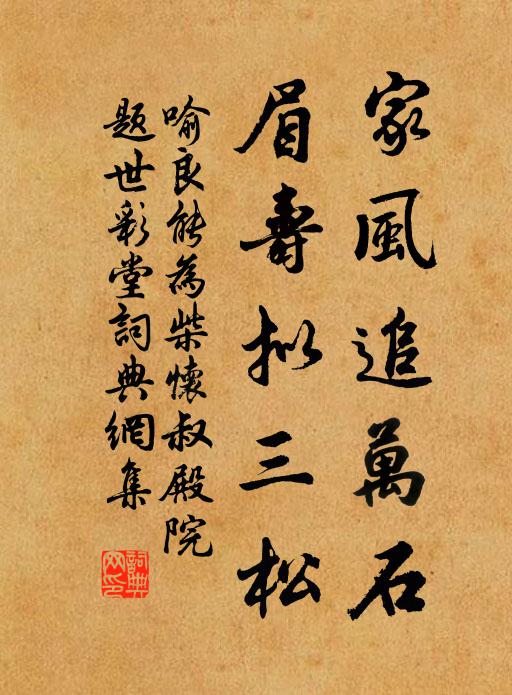 家風追萬石
眉壽拟三松
喻良能為柴懷叔殿院
题世彩堂詞典網集
詞典网印